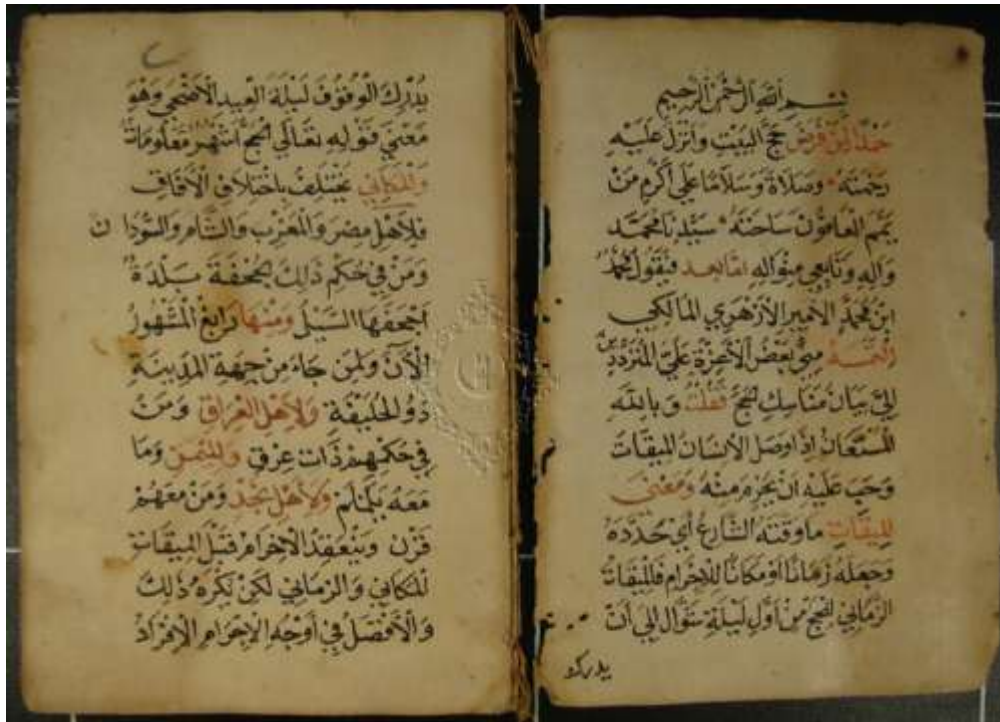 بسم الله الرحمن الرحيم
حمدا لمن فرض حج البيت وانزل عليه
رحمته وصلاة وسلاما علي اكرم من
يمم العافون ساحته سيدنا محمد
واله وتابعي منواله اما بعد فيقول محمد
ابن محمد الامير الازهري المالكي
مني بعض الاعزة علي المتردد
الي بيان مناسك الحج فقلت وبالله
المستعان اذا وصل الانسان الميقات
وجب عليه ان يحرم منه ومعني
الميقات ما وقته الشارع أي حدده
وجعله زمانا او مكانا للاحرام فالميقات
الزماني للحج من اول ليلة شوال الي ان
يدرك
يدرك الوقوف ليلة العيد الاضحي وهو
معني قوله تعالي الحج اشهر معلومات
والمكاني يختلف باختلاف الآفاق
فلاهل مصر والمغرب والشام والسودان
ومن في حكم ذلك الجحفة بلدة
اجحفها السيل ومنها رابغ المشهور
الآن ولمن جاء من جهة المدينة
ذو الحليفة ولاهل العراق ومن
في حكمهم ذات عرق ولليمن وما
معه يلملم ولاهل نجد ومن معهم
قرن وينعقد الاحرام قبل الميقات
المكاني والزماني لكن يكره ذلك
والافضل في أوجه الاحرام الافراد